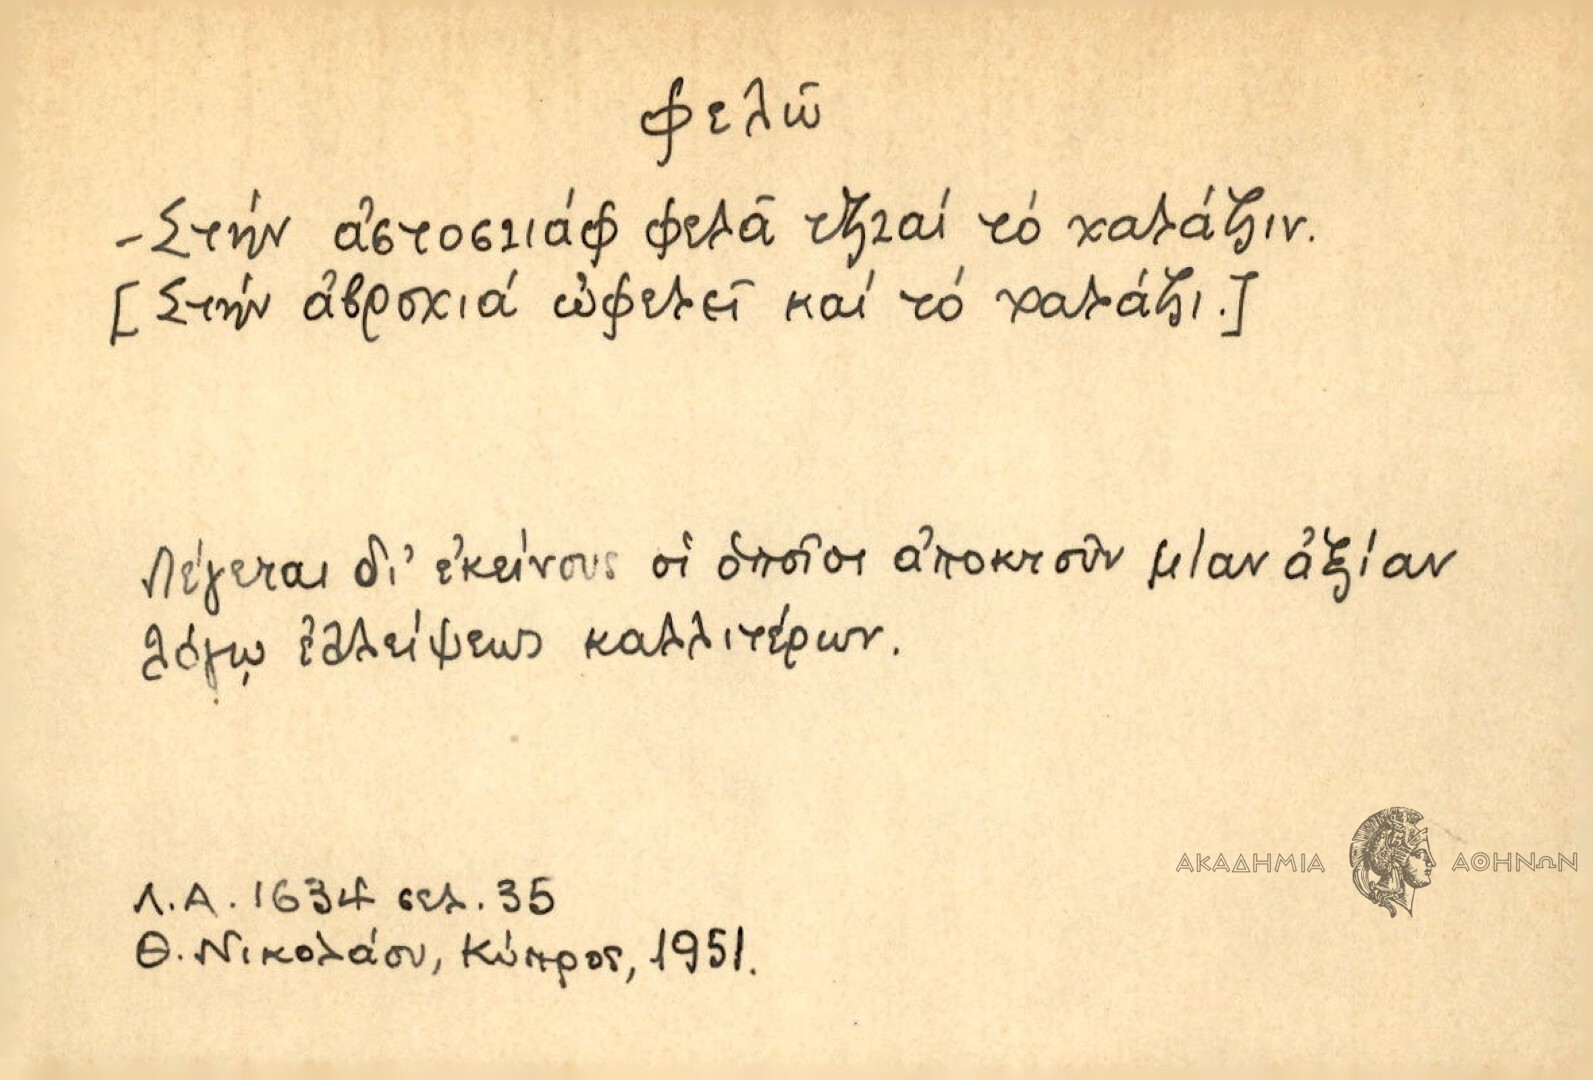 φελῶ
- Στήν ἀστοσιιάφ φελᾶ τζιαί τό χαλάζιν.
[Στήν ἀβροχιά ὠφελεῖ καί τό χαλάζι.]
Λέγεται δι' ἐκείνους οἱ ὁποῖοι ἀποκτοῦν μίαν ἀξίαν
λόγῳ ἐλλείψεως καλλιτέρων.
Λ.Α. 1634 σελ. 35
Θ. Νικολάου, Κύπρος, 1951.
ΑΚΑΔΗΜΙΑ ΑΘΗΝΩΝ